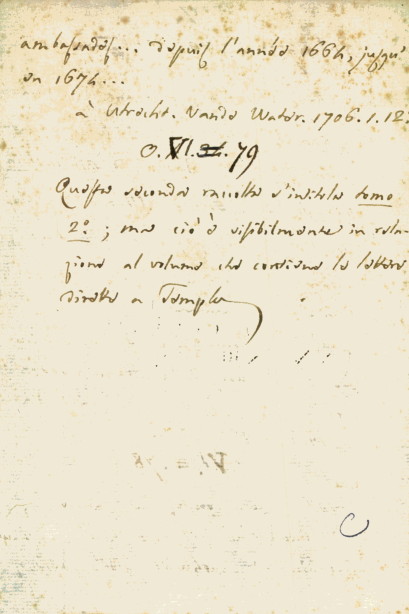 ambassades... depuis l'année 1664, jusqu'
en 1674...
à Utrecht. Vande Water. 1706. 1. 12.
O. VI. 79
Questa seconda raccolta s'intitola tomo
2º; ma ciò è visibilmente in rela-
zione al volume che contiene le lettere
dirette a Temple
C